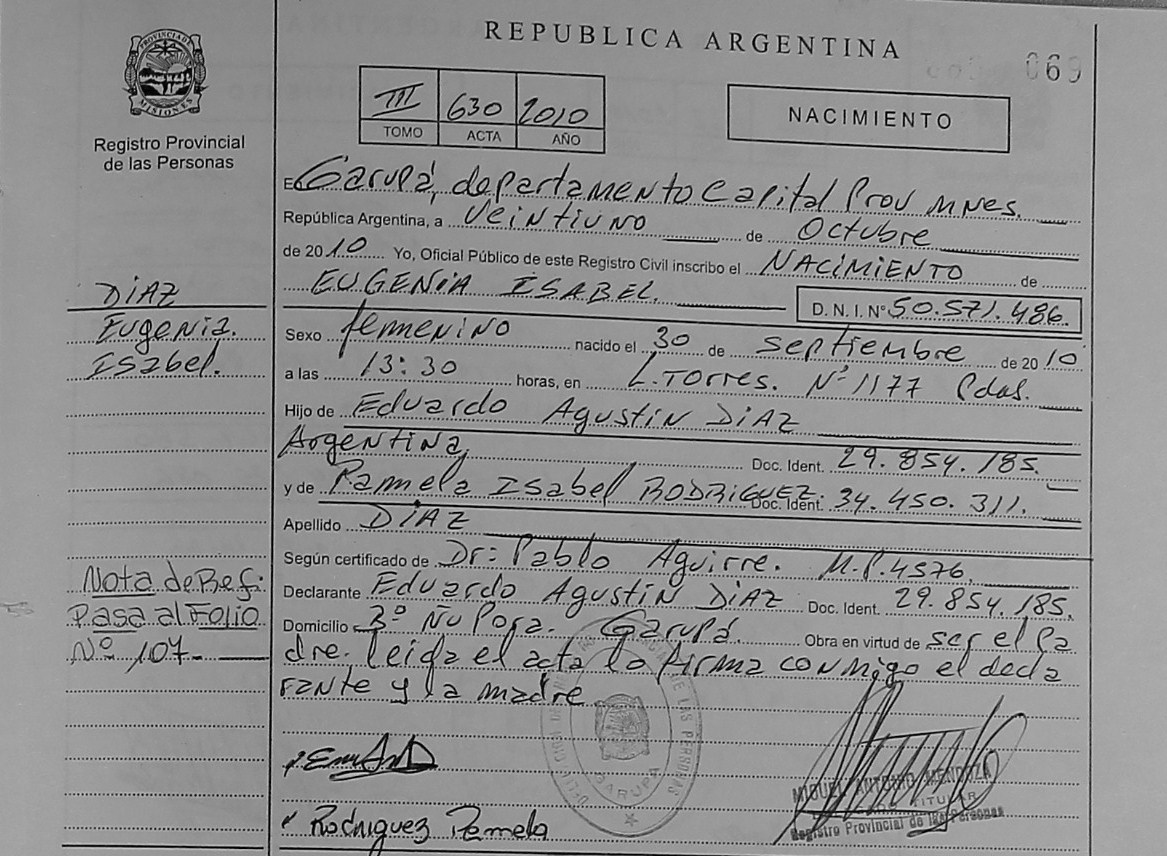 REPUBLICA ARGENTINA
069
PROVINCIA DE MISIONES
Registro Provincial
de las Personas
III 630 2010
TOMO ACTA AÑO
NACIMIENTO
E Garupá, departamento Capital Prov MNes.
República Argentina, a Veintiuno de Octubre
de 2010 Yo, Oficial Público de este Registro Civil inscribo el NACIMIENTO de
EUGENIA ISABEL. D. N. I. Nº 50.571.486.
DIAZ
Eugenia.
Isabel.
Sexo femenino nacido el 30 de septiembre de 2010
a las 13:30 horas, en L. Torres. Nº 1177 Pdas.
Hijo de Eduardo Agustin DIAZ
Argentina, Doc. Ident. 29.854.185.
y de Pamela Isabel RODRIGUEZ. Doc. Ident. 34.450.311.
Apellido DIAZ
Según certificado de Dr: Pablo Aguirre. M.P.4576.
Declarante Eduardo Agustin DIAZ Doc. Ident. 29.854.185.
Domicilio Bº Ñu Pora. Garupá. Obra en virtud de ser el pa
dre. leida el acta lo firma conmigo el decla
rante y la madre
Nota de Ref:
Pasa al Folio
Nº 107.
DE LAS PERSONAS
GARUPA
Rodriguez Pamela
MIGUEL ANTONIO MENDOZA
TITULAR
Registro Provincial de las Personas